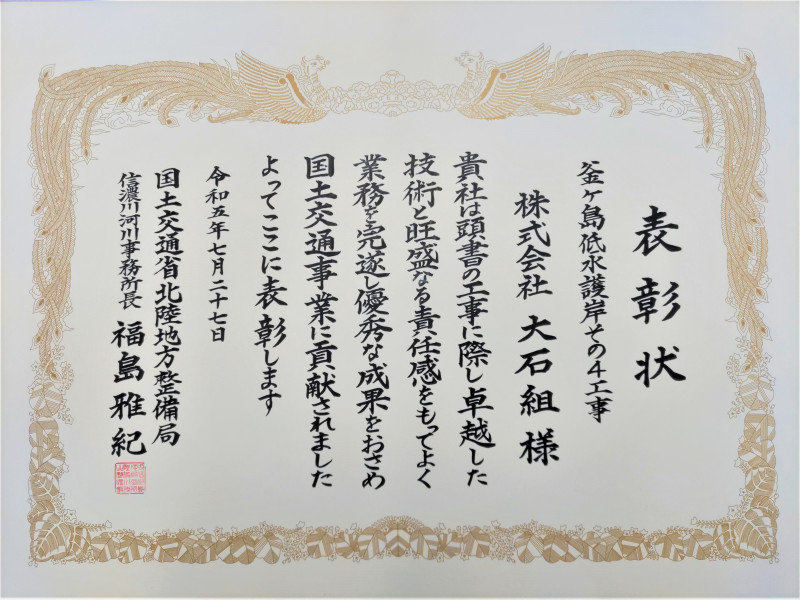 表彰状
釜ヶ島低水護岸その4工事
株式会社 大石組 様
貴社は頭書の工事に際し卓越した
技術と旺盛なる責任感をもってよく
業務を完遂し優秀な成果をおさめ
国土交通事業に貢献されました
よってここに表彰します
令和五年七月二十七日
国土交通省北陸地方整備局
信濃川河川事務所長 福島雅紀